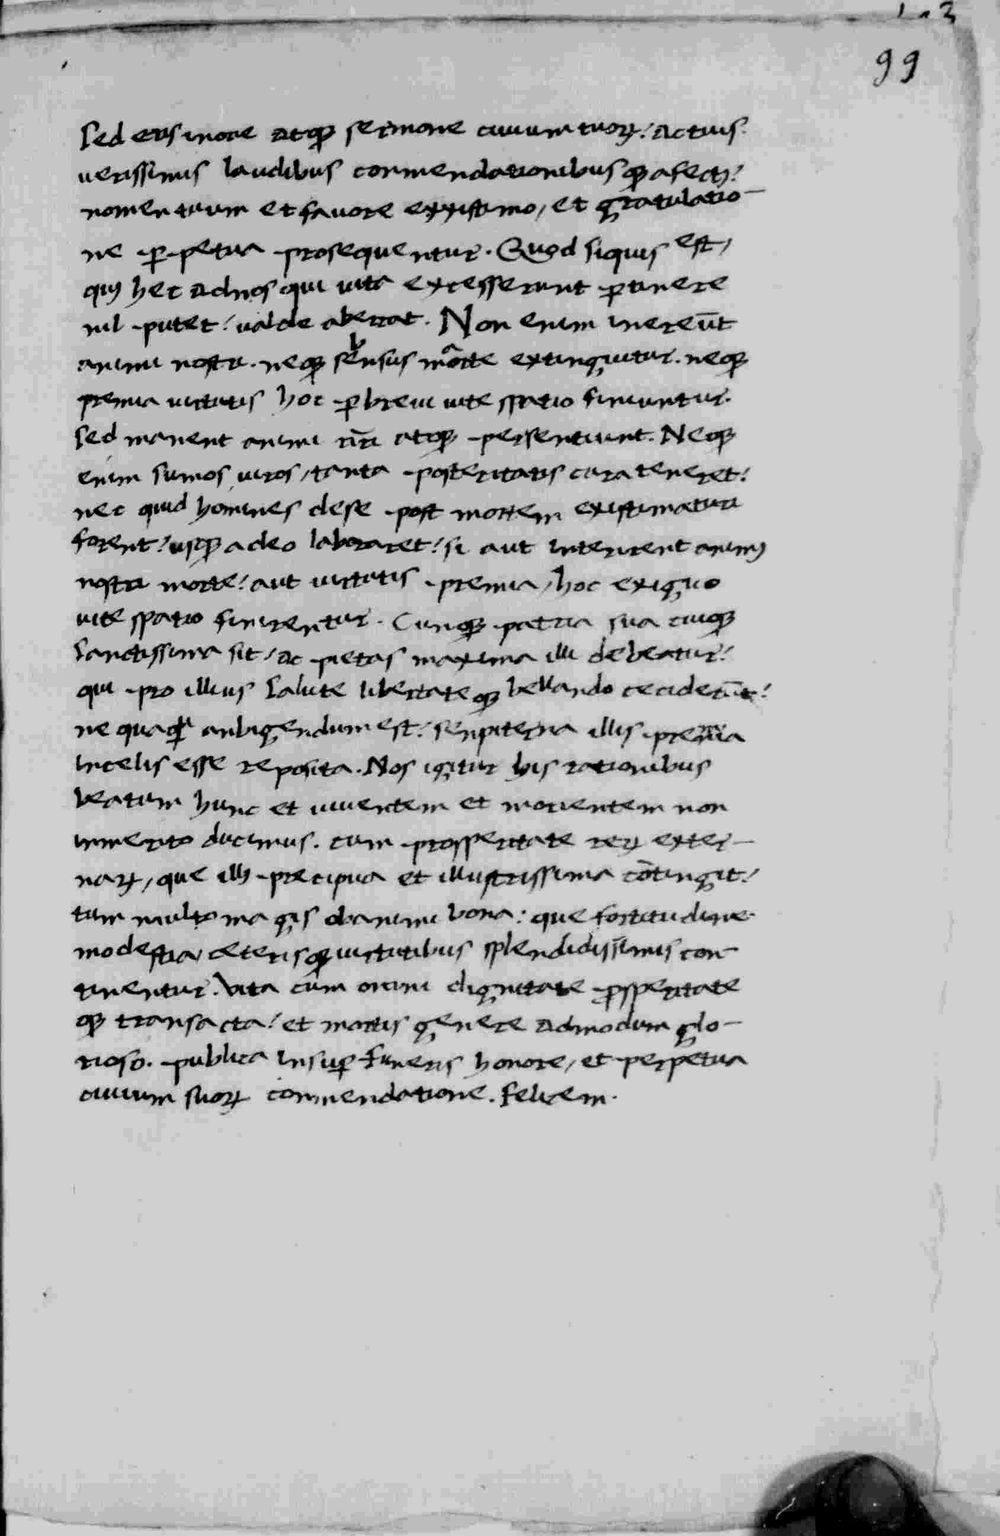 99
Sed eris in ore atq sermone ciuium tuoꝝ: ac tuis
uerissimis laudibus commendationibusq afecti:
nomen tuum et fauore exxistimo, et gratulatio-
ne ꝑpetua prosequentur. Quod siquis est,
qui hec ad nos qui uita excesserunt ꝑtinere
nil putet: ualde aberrat. Non enim intereūt
animi nostri. neq sensus morte extinguitur. neq
premia uirtutis hoc ꝑbreui uite spatio finiuntur.
Sed manent animi nr̄i atq persentiunt. Neq
enim sumos uiros, tanta posteritatis cura teneret:
nec quid homines de se post mortem existimaturi
forent: usq adeo laboraret: si aut interirent animi
nostri morte: aut uirtutis premia, hoc exiguo
uite spatio finirentur. Cunq patria sua cuiq
Sanctissima sit, ac pietas maxima illi debeatur:
qui pro illius Salute libertateq bellando ceciderūt:
ne quaq̄ anbigendum est: senpiterna illis premia
in celis esse reposita. Nos igitur his rationibus
beatum hunc et uiuentem et morientem non
inmerito ducimus. cum prosperitate reꝝ exter-
naꝝ, que illi precipua et illustrissima cōtingit:
tum multo magis ob animi bona: que fortitudine
modestia, ceterisq uirtutibus splendidissimis con-
tinentur. Vita cum omni dignitate ꝓsperitate
q transacta: et mortis genere admodum glo-
rioso. publica insuꝑ funeris honore, et perpetua
ciuium suoꝝ commendatione. Felicem.